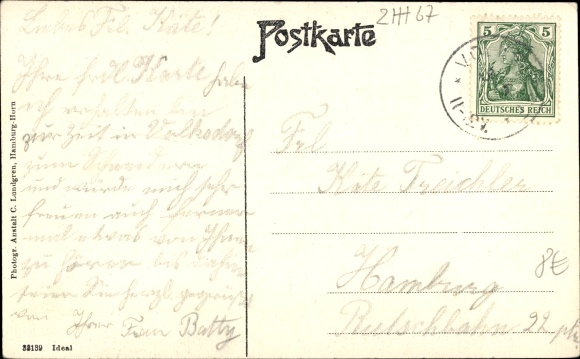 Liebes Frl. Käte!
Ihre frdl. Karte habe
ich erhalten bin
zur Zeit in Volksdorf
zum
und würde mich sehr
freuen auch
mal etwas von Ihnen
zu hören bis dahin
seien Sie herzl. gegrüßt
von Ihrer Frau Batty
Photogr. Anstalt C. Lundgren, Hamburg-Horn
33139 Ideal
Postkarte
2HH67
5 5
DEUTSCHES REICH
11-12V.
Frl
Käte Treichler
Hamburg
8€
Rutschbahn 22 ptr.